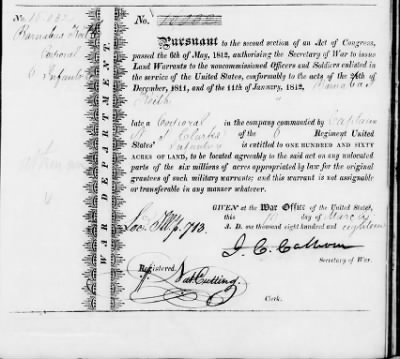 No.
PURSUANT to the second section of an Act of Congress,
passed the 6th of May, 1812, authorising the Secretary of War to issue
Land Warrants to the noncommissioned Officers and Soldiers enlisted
in the service of the United States, conformably to the acts of the 24th of
December, 1811, and of the 11th of January, 1812, Barnabas
Keith
late a Corporal in the company commanded by Captain
N. S. Clarke of the 6 Regiment United
States' Infantry is entitled to ONE HUNDRED AND SIXTY
ACRES OF LAND, to be located agreeably to the said act on any unlocated
parts of the six millions of acres appropriated by law for the original
grantees of such military warrants; and this warrant is not assignable
or transferable in any manner whatever.
GIVEN at the War Office of the United States,
this 10 day of March
A. D. one thousand eight hundred and eighteen
J. C. Calhoun
Secretary of War.
Registered
Nat Cutting
Clerk.
WAR DEPARTMENT.
Corporal
6 Infantry